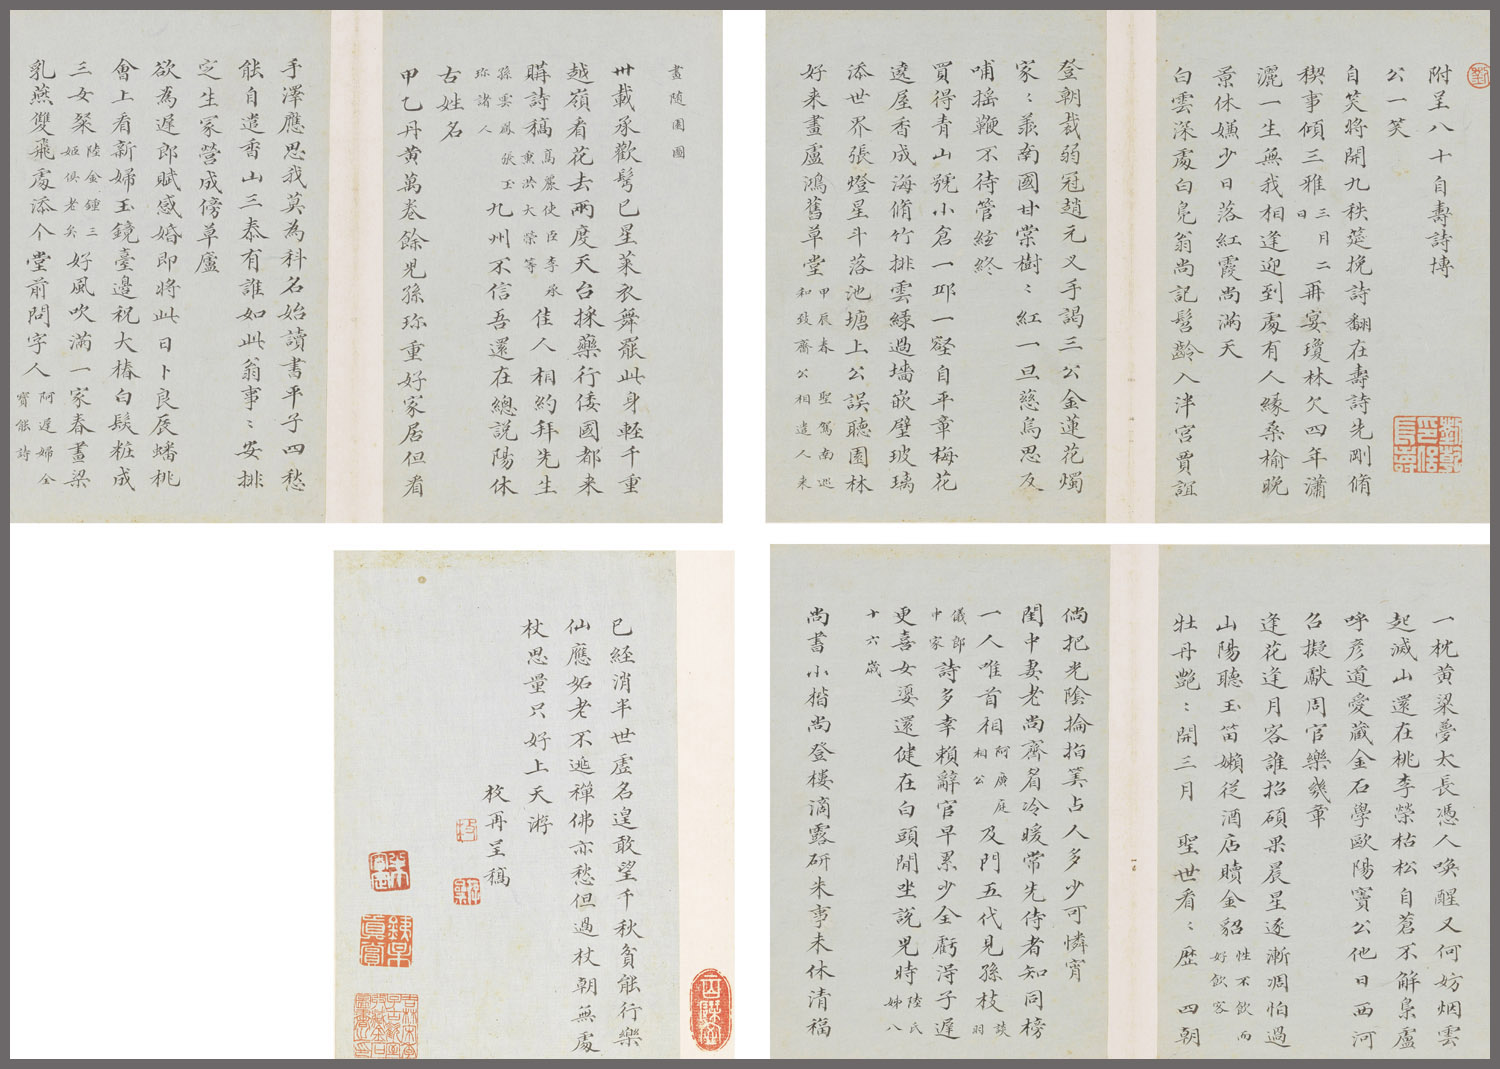 附呈八十自壽詩博
公一笑
自笑將開九秩筵挽詩翻在壽詩先剛脩
禊事傾三雅三月二日再宴瓊林欠四年瀟
灑一生無我相逢迎到處有人緣桑榆晚
景休嫌少日落紅霞尚滿天
白雲深處白鳧翁尚記髫齡入泮宮賈誼
登朝裁弱冠趙元叉手謁三公金蓮花燭
家〻羨南國甘棠樹〻紅一旦慈烏思反
哺搖鞭不待管絃終
買得青山號小倉一邱一壑自平章梅花
遶屋香成海脩竹排雲綠過墻嵌壁玻璃
添世界張燈星斗落池塘上公誤聽園林
好来畫盧鴻舊草堂甲辰春聖駕南巡和致齋公相遣人来
畫隨園圖
卅載承歡髩已星萊衣舞罷此身輕千重
越嶺看花去兩度天台採藥行倭國都来
購詩稿高麗使臣李承重洪大榮等佳人相約拜先生
孫雲鳳張玉珎諸人九州不信吾還在總說陽休
古姓名
甲乙丹黃萬卷餘兒孫珎重好家居但看
手澤應思我莫為科名始讀書平子四愁
能自遣香山三泰有誰如此翁事〻安排
定生冢營成傍草廬
欲為遲郎賦感婚即將此日卜良辰蟠桃
會上看新婦玉鏡臺邊祝大椿白鬂粧成
三女粲陸金鍾三姬俱老矣好風吹滿一家春畫梁
乳燕雙飛處添个堂前問字人阿遲婦全寳能詩
一枕黃粱夢太長憑人喚醒又何妨烟雲
起滅山還在桃李榮枯松自蒼不解梟盧
呼彥道愛藏金石學歐陽竇公他日西河
召擬獻周官樂幾章
逢花逢月客誰招碩果晨星逐漸凋怕過
山陽聽玉笛嬾從酒店贖金貂性不飲而好飲客
牡丹艷〻開三月 聖世看〻歷 四朝
倘把光陰掄指筭占人多少可憐宵
閨中妻老尚齊眉冷暖常先侍者知同榜
一人唯首相阿廣庭相公及門五代見孫枝談羽
儀郎中家詩多幸賴辭官早累少全虧得子遲
更喜女嬃還健在白頭閒坐說兒時陸氏姊八
十六歲
尚書小楷尚登樓滴露研朱事未休清福
已經消半世虛名遑敢望千秋貧能行樂
仙應妬老不逃禪佛亦愁但過杖朝無處
杖思量只好上天游
枚再呈稿